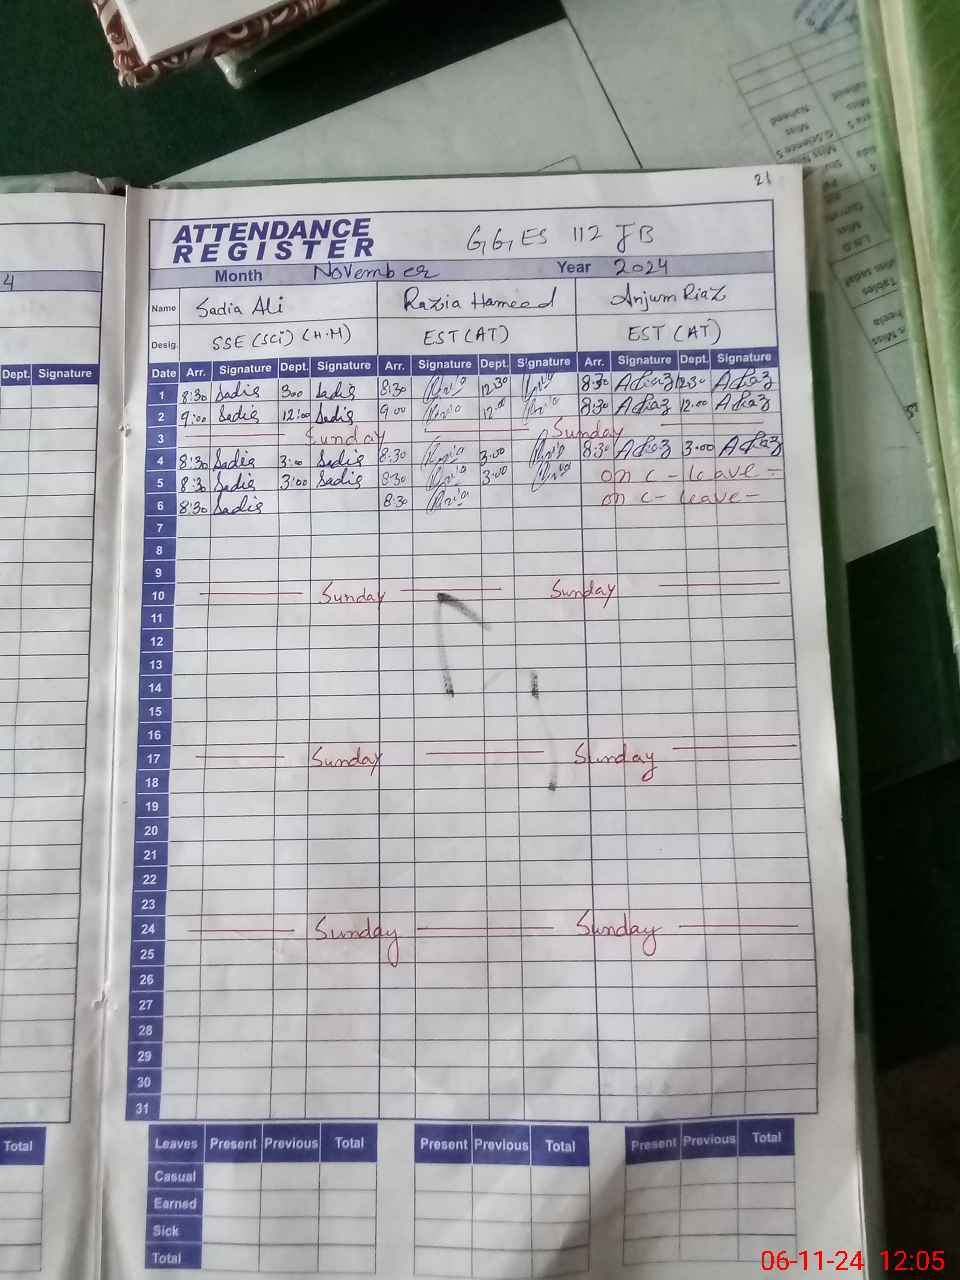 21
ATTENDANCE
REGISTER
G.G.ES 112 JB
4
Month November Year 2024
Name Sadia Ali Razia Hameed Anjum Riaz
Desig. SSE (SCi) (H.M) EST (AT) EST (AT)
Dept. Signature
Date Arr. Signature Dept. Signature Arr. Signature Dept. Signature Arr. Signature Dept. Signature
1 8:30 Sadia 3:00 Sadia 8:30 12:30 8:30 ARiaz 12:30 ARiaz
2 9:00 Sadia 12:00 Sadia 9:00 12:00 8:30 ARiaz 12:00 ARiaz
3 Sunday Sunday
4 8:30 Sadia 3:00 Sadia 8:30 3:00 8:30 ARiaz 3:00 ARiaz
5 8:30 Sadia 3:00 Sadia 8:30 3:00 on C - leave -
6 8:30 Sadia 8:30 on C - leave -
7
8
9
10 Sunday Sunday
11
12
13
14
15
16
17 Sunday Sunday
18
19
20
21
22
23
24 Sunday Sunday
25
26
27
28
29
30
31
Total
Leaves Present Previous Total Present Previous Total Present Previous Total
Casual
Earned
Sick
Total
06-11-24 12:05